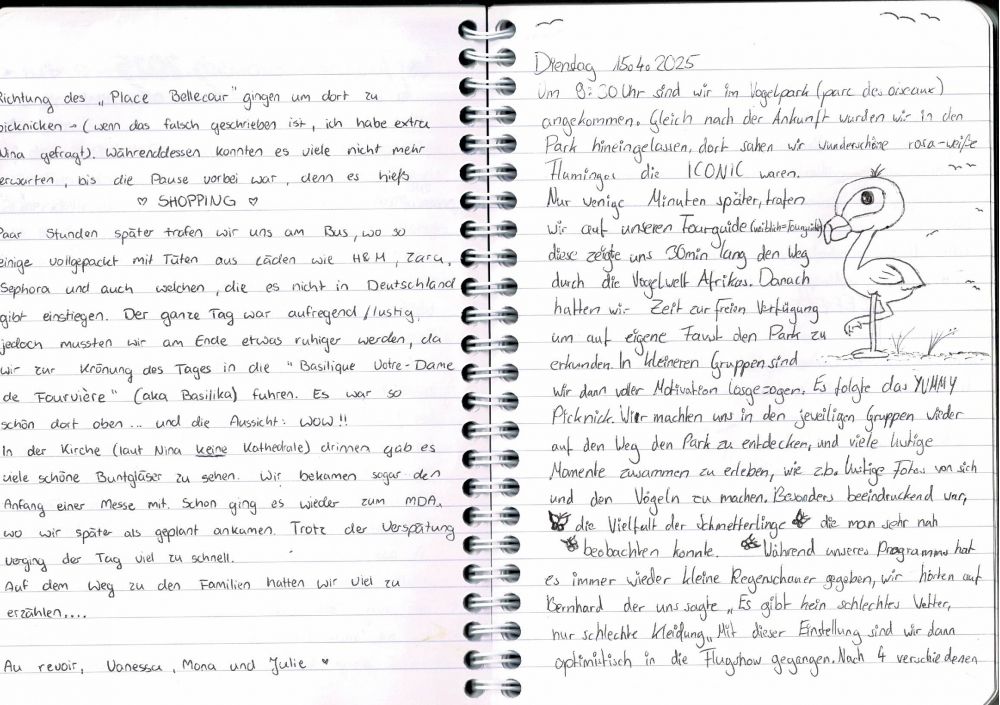 Richtung des „Place Bellecour" gingen um dort zu
picknicken → (wenn das falsch geschrieben ist, ich habe extra
Nina gefragt). Währenddessen konnten es viele nicht mehr
erwarten, bis die Pause vorbei war, denn es hieß
♡ SHOPPING ♡
Paar Stunden später trafen wir uns am Bus, wo so
einige vollgepackt mit Tüten aus Läden wie H&M, Zara,
Sephora und auch welchen, die es nicht in Deutschland
gibt einstiegen. Der ganze Tag war aufregend / lustig,
jedoch mussten wir am Ende etwas ruhiger werden, da
wir zur Krönung des Tages in die "Basilique Notre-Dame
de Fourvière" (aka Basilika) fuhren. Es war so
schön dort oben... und die Aussicht: WOW!!
In der Kirche (laut Nina keine Kathedrale) drinnen gab es
viele schöne Buntgläser zu sehen. Wir bekamen sogar den
Anfang einer Messe mit. Schon ging es wieder zum MDA,
wo wir später als geplant ankamen. Trotz der Verspätung
verging der Tag viel zu schnell.
Auf dem Weg zu den Familien hatten wir viel zu
erzählen....
Au revoir, Vanessa, Mona und Julie ♥
Dienstag 15.4.2025
Um 8:30 Uhr sind wir im Vogelpark (parc des oiseaux)
angekommen. Gleich nach der Ankunft wurden wir in den
Park hineingelassen, dort sahen wir wunderschöne rosa-weiße
Flamingos die ICONIC waren.
Nur wenige Minuten später, trafen
wir auf unseren Tourguide
diese zeigte uns 30min lang den Weg
durch die Vogelwelt Afrikas. Danach
hatten wir Zeit zur freien Verfügung
um auf eigene Faust den Park zu
erkunden. In kleineren Gruppen sind
wir dann voller Motivation losgezogen. Es folgte das YUMMY
Picknick. Wir machten uns in den jeweiligen Gruppen wieder
auf den Weg den Park zu entdecken, und viele lustige
Momente zusammen zu erleben, wie z.b. lustige Fotos von sich
und den Vögeln zu machen. Besonders beeindruckend war,
die Vielfalt der Schmetterlinge die man sehr nah
beobachten konnte. Während unseres Programms hat
es immer wieder kleine Regenschauer gegeben, wir hörten auf
Bernhard der uns sagte „Es gibt kein schlechtes Wetter,
nur schlechte Kleidung„ Mit dieser Einstellung sind wir dann
optimistisch in die Flugshow gegangen. Nach 4 verschiedenen